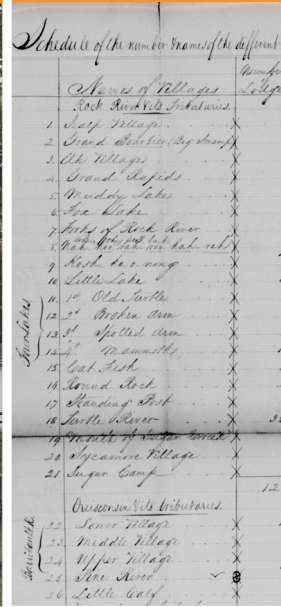 Schedule of the number & names of the different
Number
Names of Villages
Rock River & its Tributaries.
1. Scalp Village
2. Grand Bourbier (Big Swamp)
3. Elk Village
4. Grand Rapids
5. Muddy Lake
6. Fox Lake
7. Forks of Rock River
8.
9. Kosh ko o nong
10. Little Lake
Four Lakes
11. 1st Old Turtle
12. 2d Broken Arm
13. 3d Spotted Arm
14. 4th Mammoth
15. Cat Fish
16. Round Rock
17. Standing Post
18. Turtle River
19. Mouth of Sugar
20. Sycamore Village
21. Sugar Camp
12
Ouisconsin & its tributaries.
22. Lower Village
23. Middle Village
24. Upper Village
25. Pine River
26. Little Calf